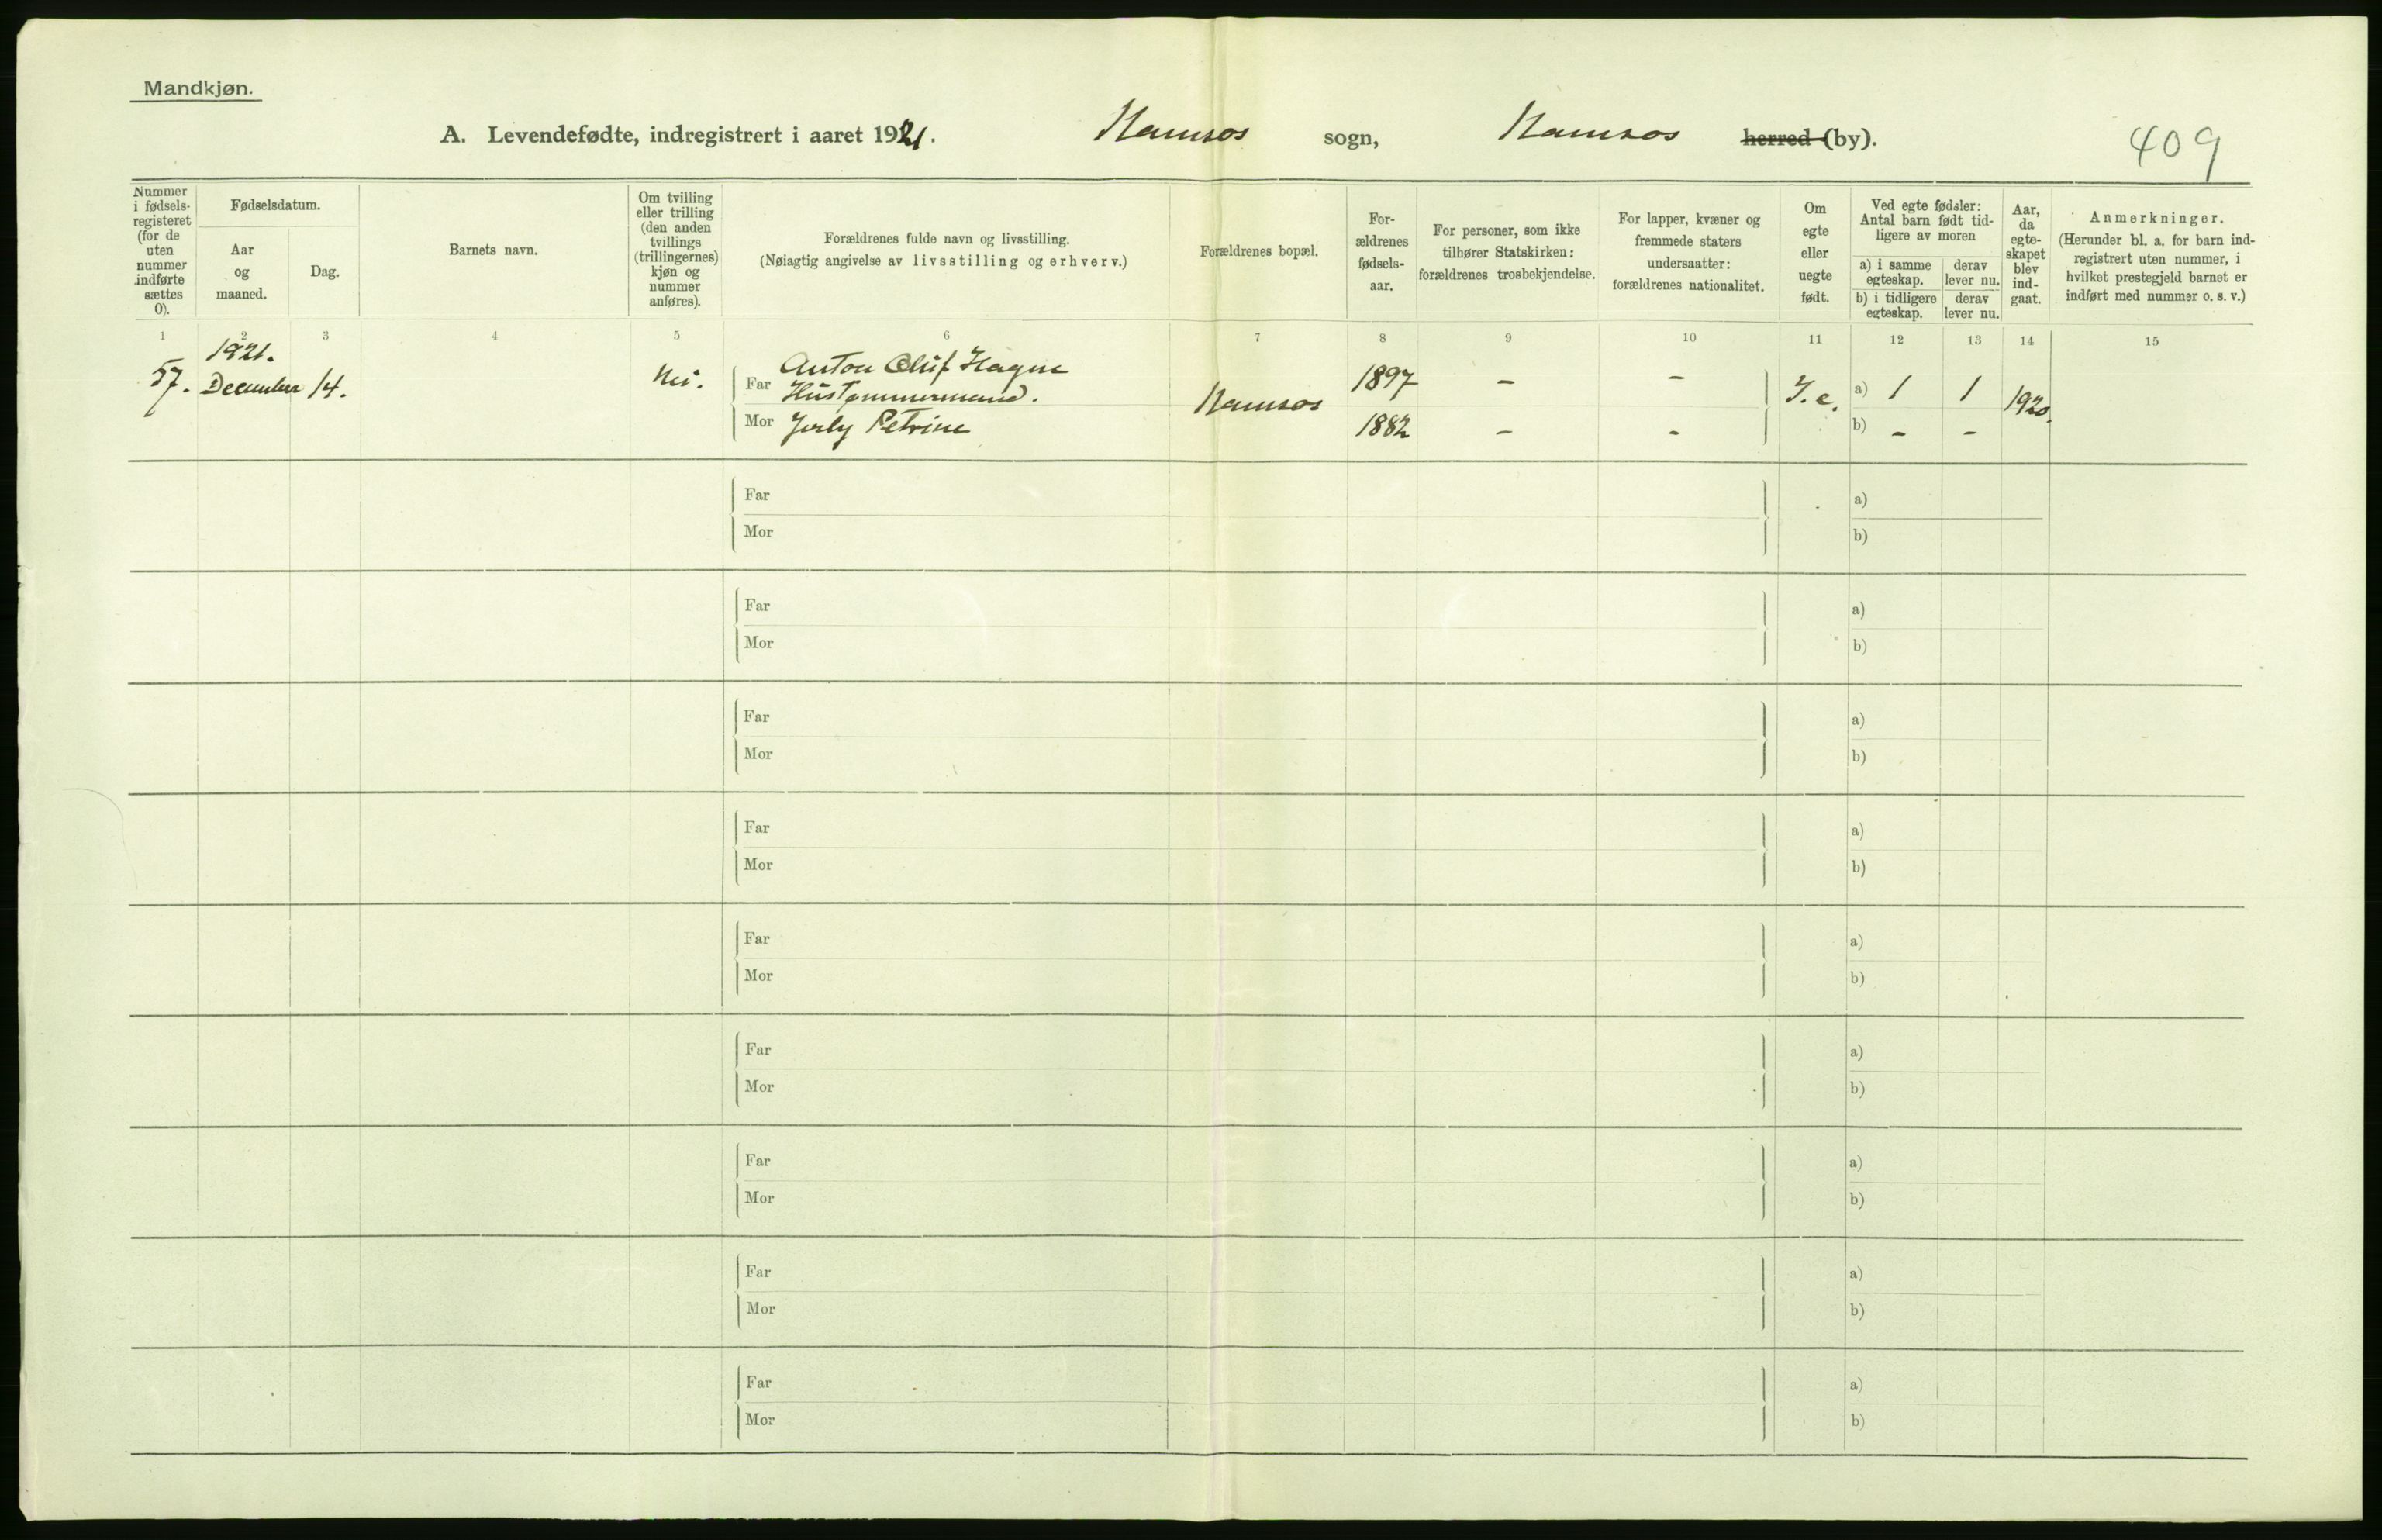 Mandkjøn.
A. Levendefødte, indregistrert i aaret 1921. Namsos sogn, Namsos herred (by).
409
Nummer i fødsels-registeret (for de uten nummer indførte sættes 0).
Fødselsdatum.
Aar og maaned.
Dag.
Barnets navn.
Om tvilling eller trilling (den anden tvillings (trillingernes) kjøn og nummer anføres).
Forældrenes fulde navn og livsstilling.
(Nøiagtig angivelse av livsstilling og erhverv.)
Forældrenes bopæl.
For-ældrenes fødsels-aar.
For personer, som ikke tilhører Statskirken: forældrenes trosbekjendelse.
For lapper, kvæner og fremmede staters undersaatter: forældrenes nationalitet.
Om egte eller uegte født.
Ved egte fødsler: Antal barn født tid-ligere av moren
a) i samme egteskap.
derav lever nu.
b) i tidligere egteskap.
derav lever nu.
Aar, da egte-skapet blev ind-gaat.
Anmerkninger.
(Herunder bl. a. for barn ind-registrert uten nummer, i hvilket prestegjeld barnet er indført med nummer o. s. v.)
1 2 3 4 5 6 7 8 9 10 11 12 13 14 15
1921.
57. December 14. Nei. Far Anton Oluf Hagne 1897 – – I. e. a) 1 1 1920.
Hustømmermand. Namsos
Mor Petrine 1882 – – b) – –
Far a)
Mor b)
Far a)
Mor b)
Far a)
Mor b)
Far a)
Mor b)
Far a)
Mor b)
Far a)
Mor b)
Far a)
Mor b)
Far a)
Mor b)
Far a)
Mor b)